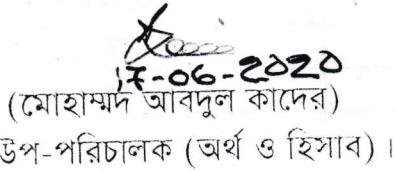 17-06-2020
(মোহাম্মদ আবদুল কাদের)
উপ-পরিচালক (অর্থ ও হিসাব)।